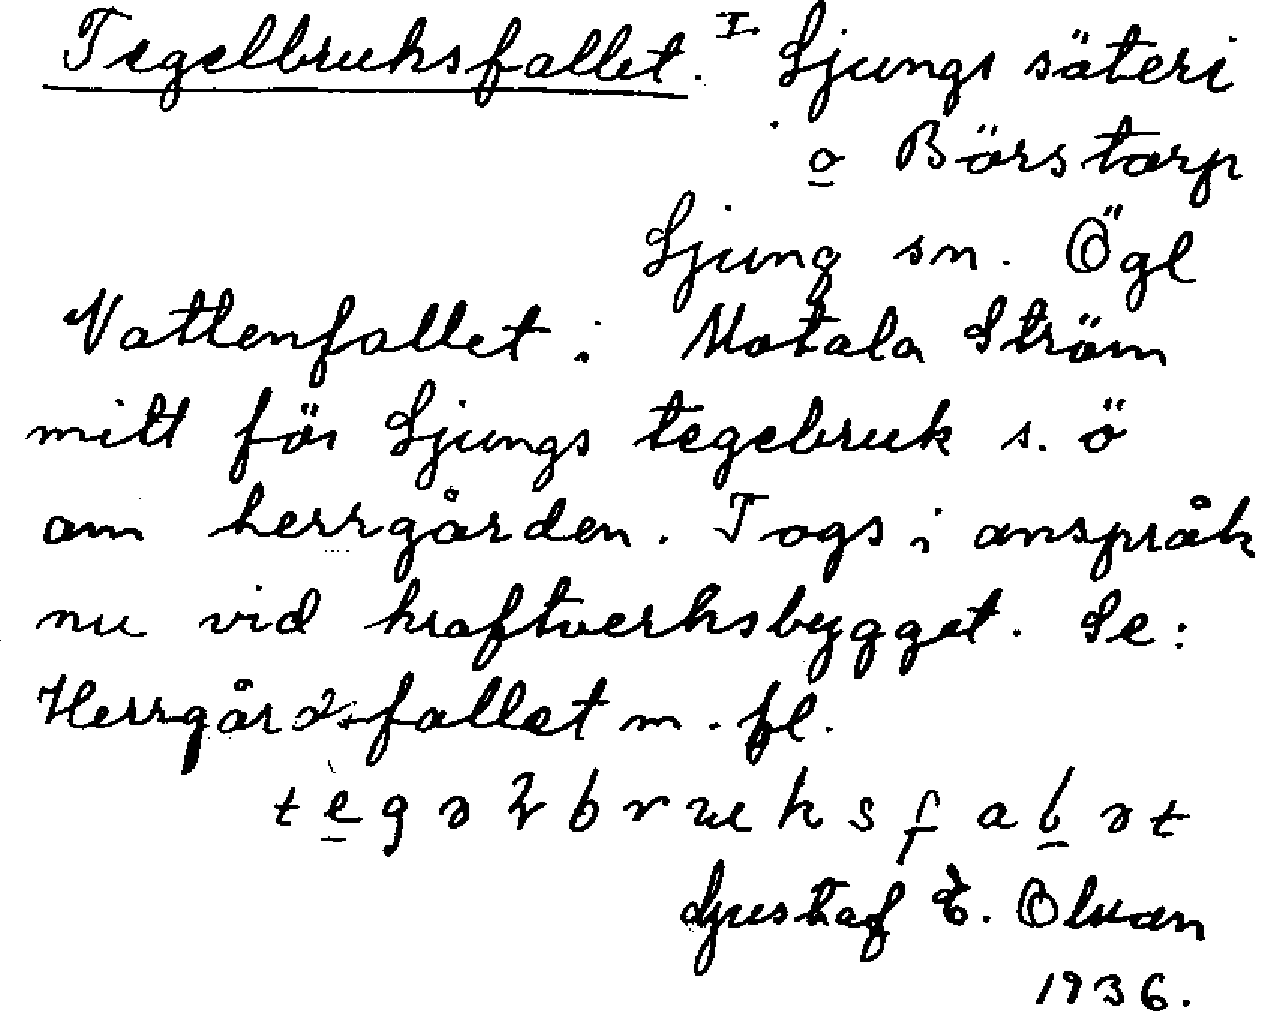 Tegelbruksfallet. I Ljungs säteri
o Börstorp
Ljung sn. Ögl
Vattenfallet i Motala Ström
mitt för Ljungs tegebruk s. ö
om herrgården. Togs i anspråk
nu vid kraftverksbygget. Se:
Herrgårdsfallet m. fl.
Gustaf E. Olvan
1936.